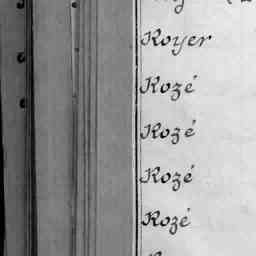 Royer
Rozé
Rozé
Rozé
Rozé